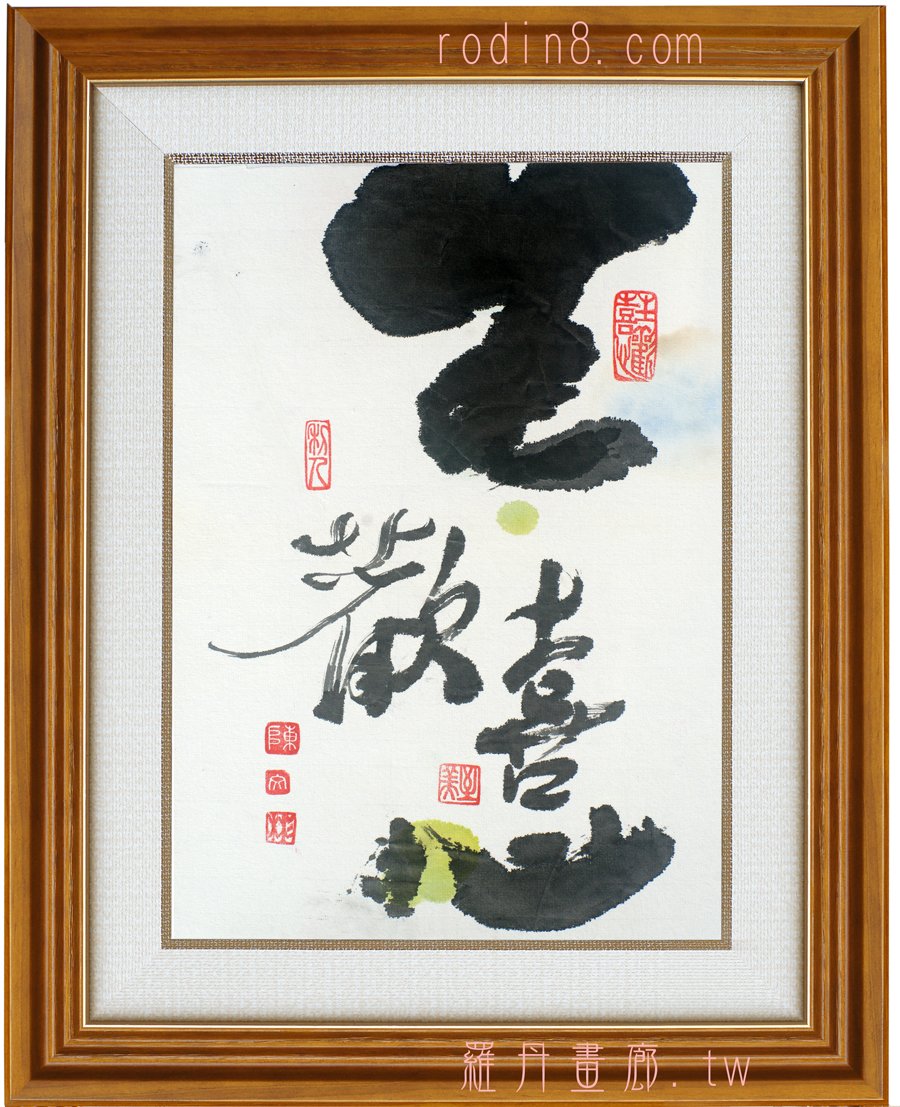 rodin8.com
歡
喜
心
利人
陳
羅丹畫廊.tw